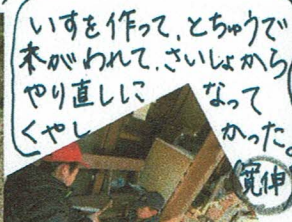 いすを作って、とちゅうで
木がわれて、さいしょから
やり直しになって
くやしかった。
寛伸